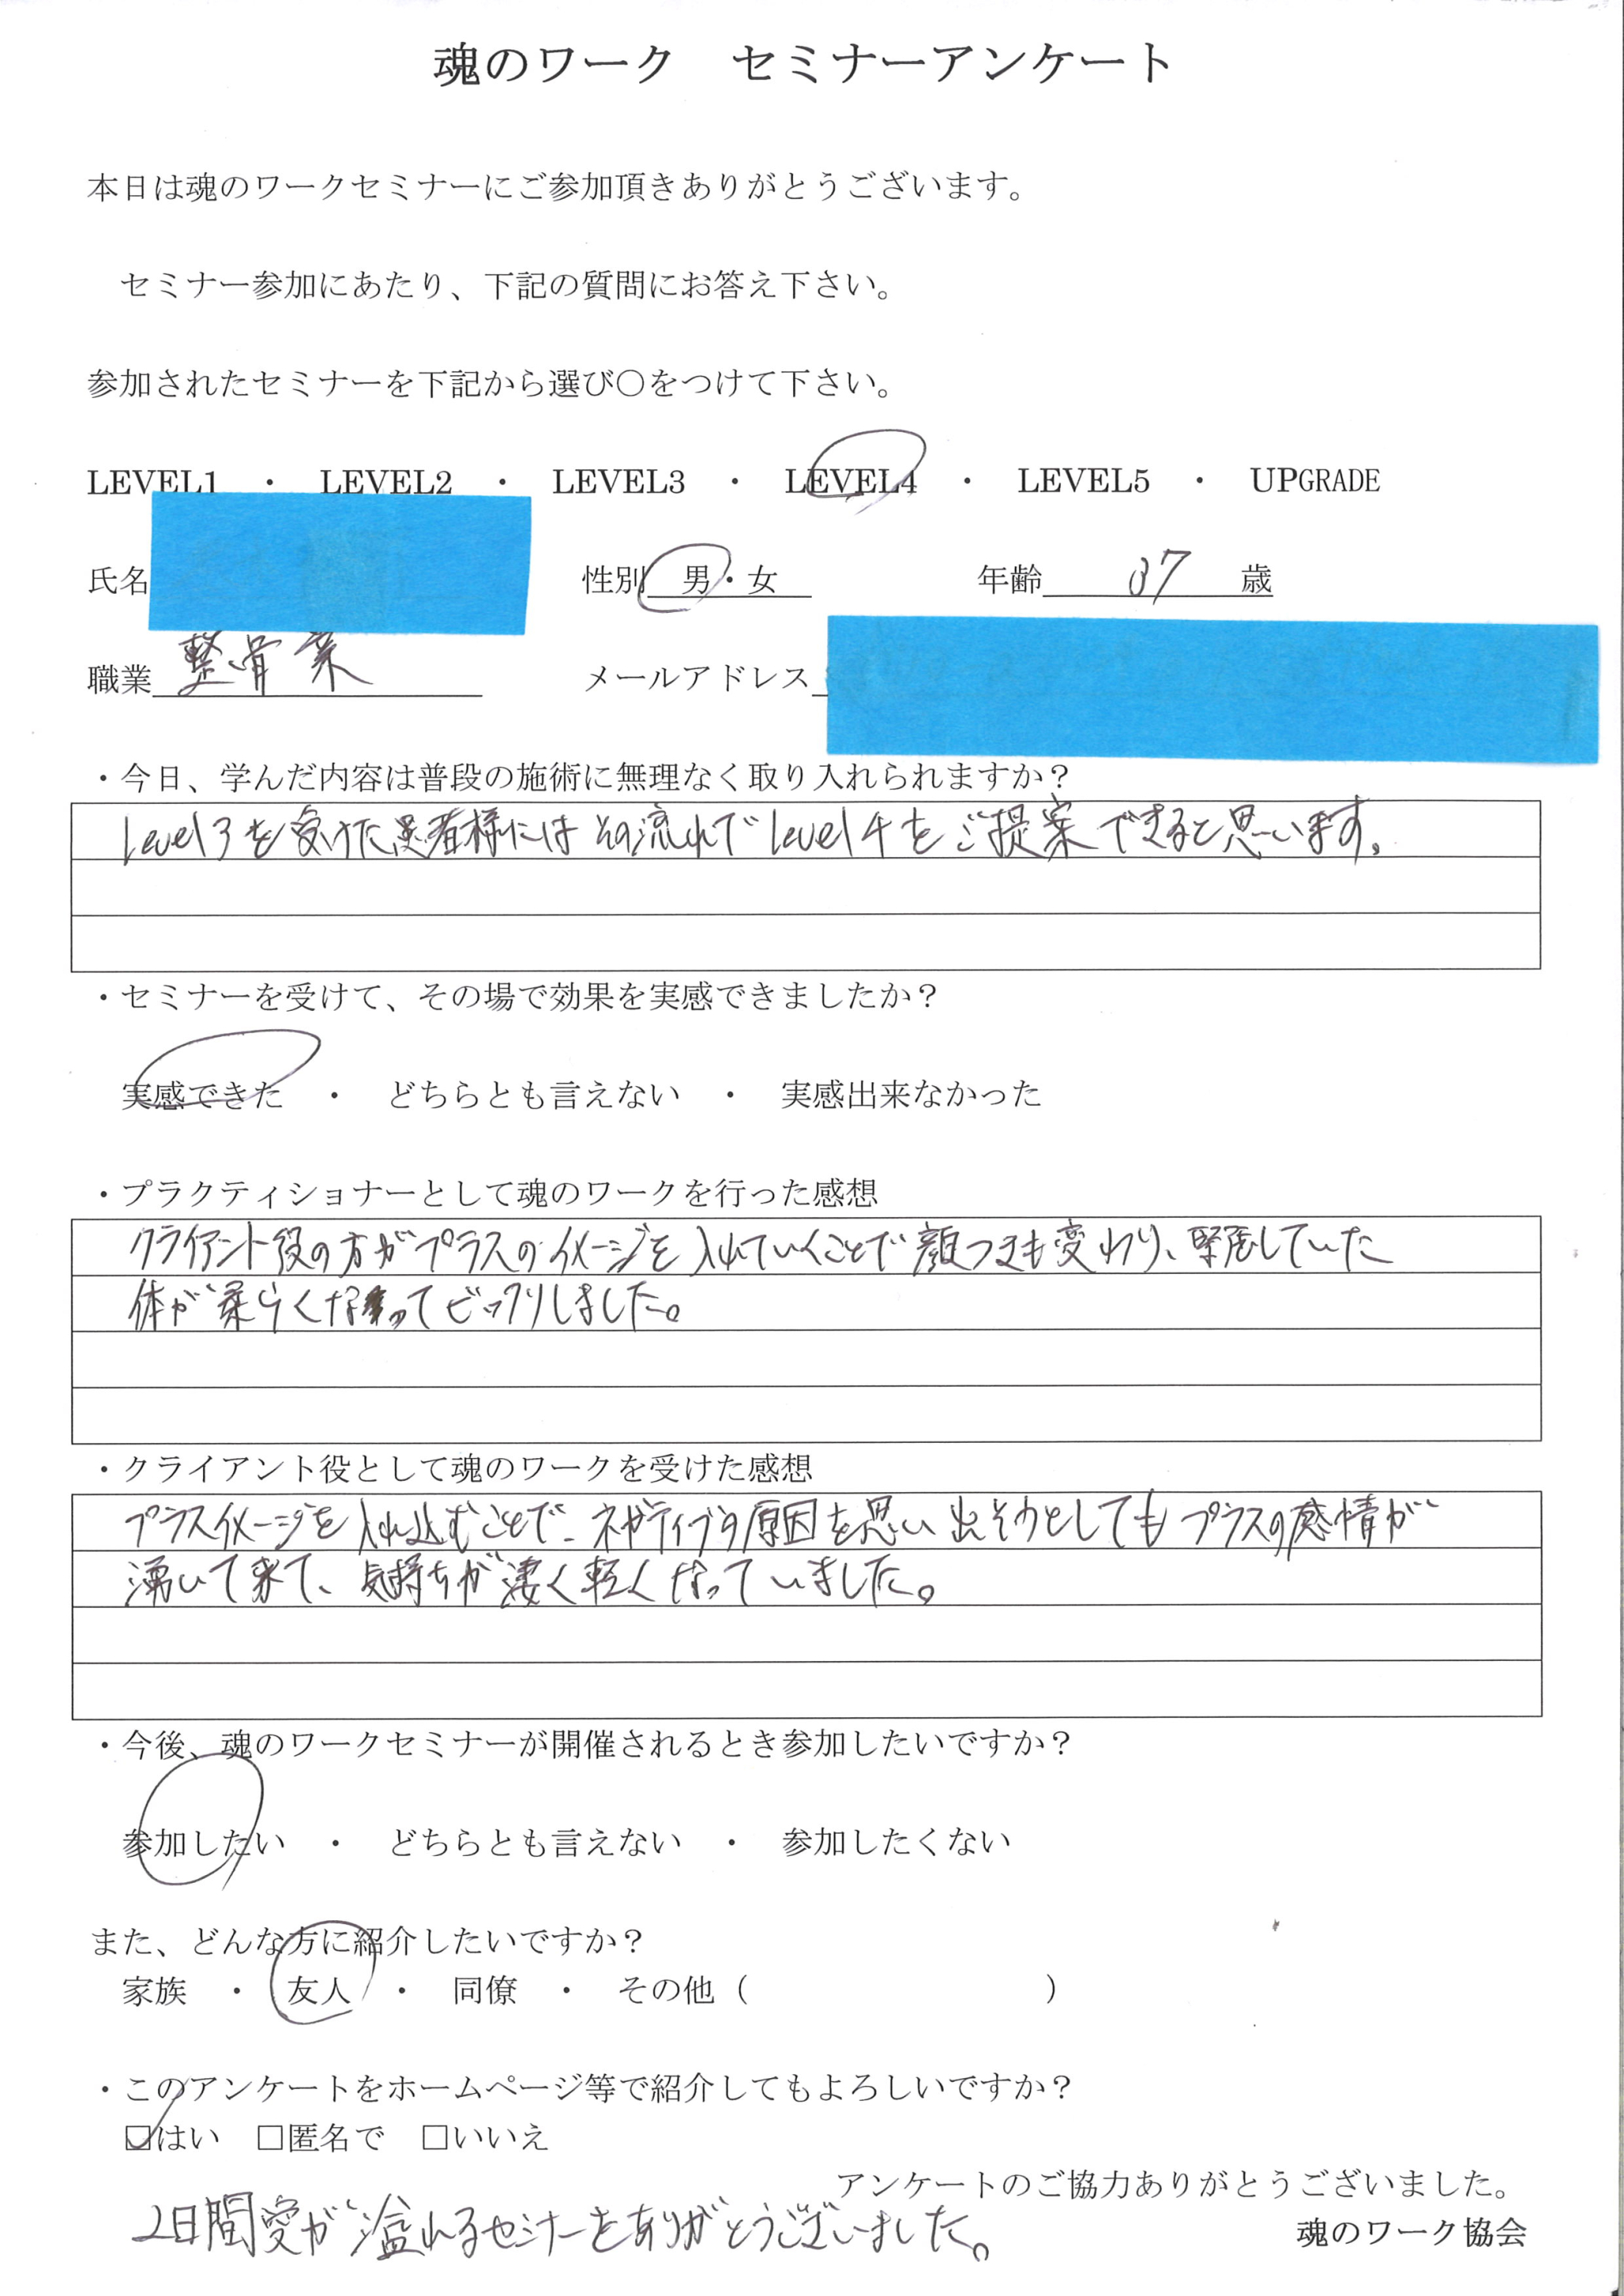 魂のワーク　セミナーアンケート
本日は魂のワークセミナーにご参加頂きありがとうございます。
セミナー参加にあたり、下記の質問にお答え下さい。
参加されたセミナーを下記から選び〇をつけて下さい。
LEVEL1 ・ LEVEL2 ・ LEVEL3 ・ LEVEL4 ・ LEVEL5 ・ UPGRADE
氏名 性別 男・女 年齢 37 歳
職業 整骨業 メールアドレス
・今日、学んだ内容は普段の施術に無理なく取り入れられますか？
level3を受けた患者様にはその流れでlevel4をご提案できると思います。
・セミナーを受けて、その場で効果を実感できましたか？
実感できた ・ どちらとも言えない ・ 実感出来なかった
・プラクティショナーとして魂のワークを行った感想
クライアント役の方がプラスのイメージを入れていくことで顔つきも変わり、緊張していた
体が柔らくなってビックリしました。
・クライアント役として魂のワークを受けた感想
プラスイメージを入れ込むことで、ネガティブの原因を思い出そうとしてもプラスの感情が
湧いて来て、気持ちが凄く軽くなっていました。
・今後、魂のワークセミナーが開催されるとき参加したいですか？
参加したい ・ どちらとも言えない ・ 参加したくない
また、どんな方に紹介したいですか？
家族 ・ 友人 ・ 同僚 ・ その他（ ）
・このアンケートをホームページ等で紹介してもよろしいですか？
☑はい □匿名で □いいえ
アンケートのご協力ありがとうございました。
2日間愛が溢れるセミナーをありがとうございました。
魂のワーク協会